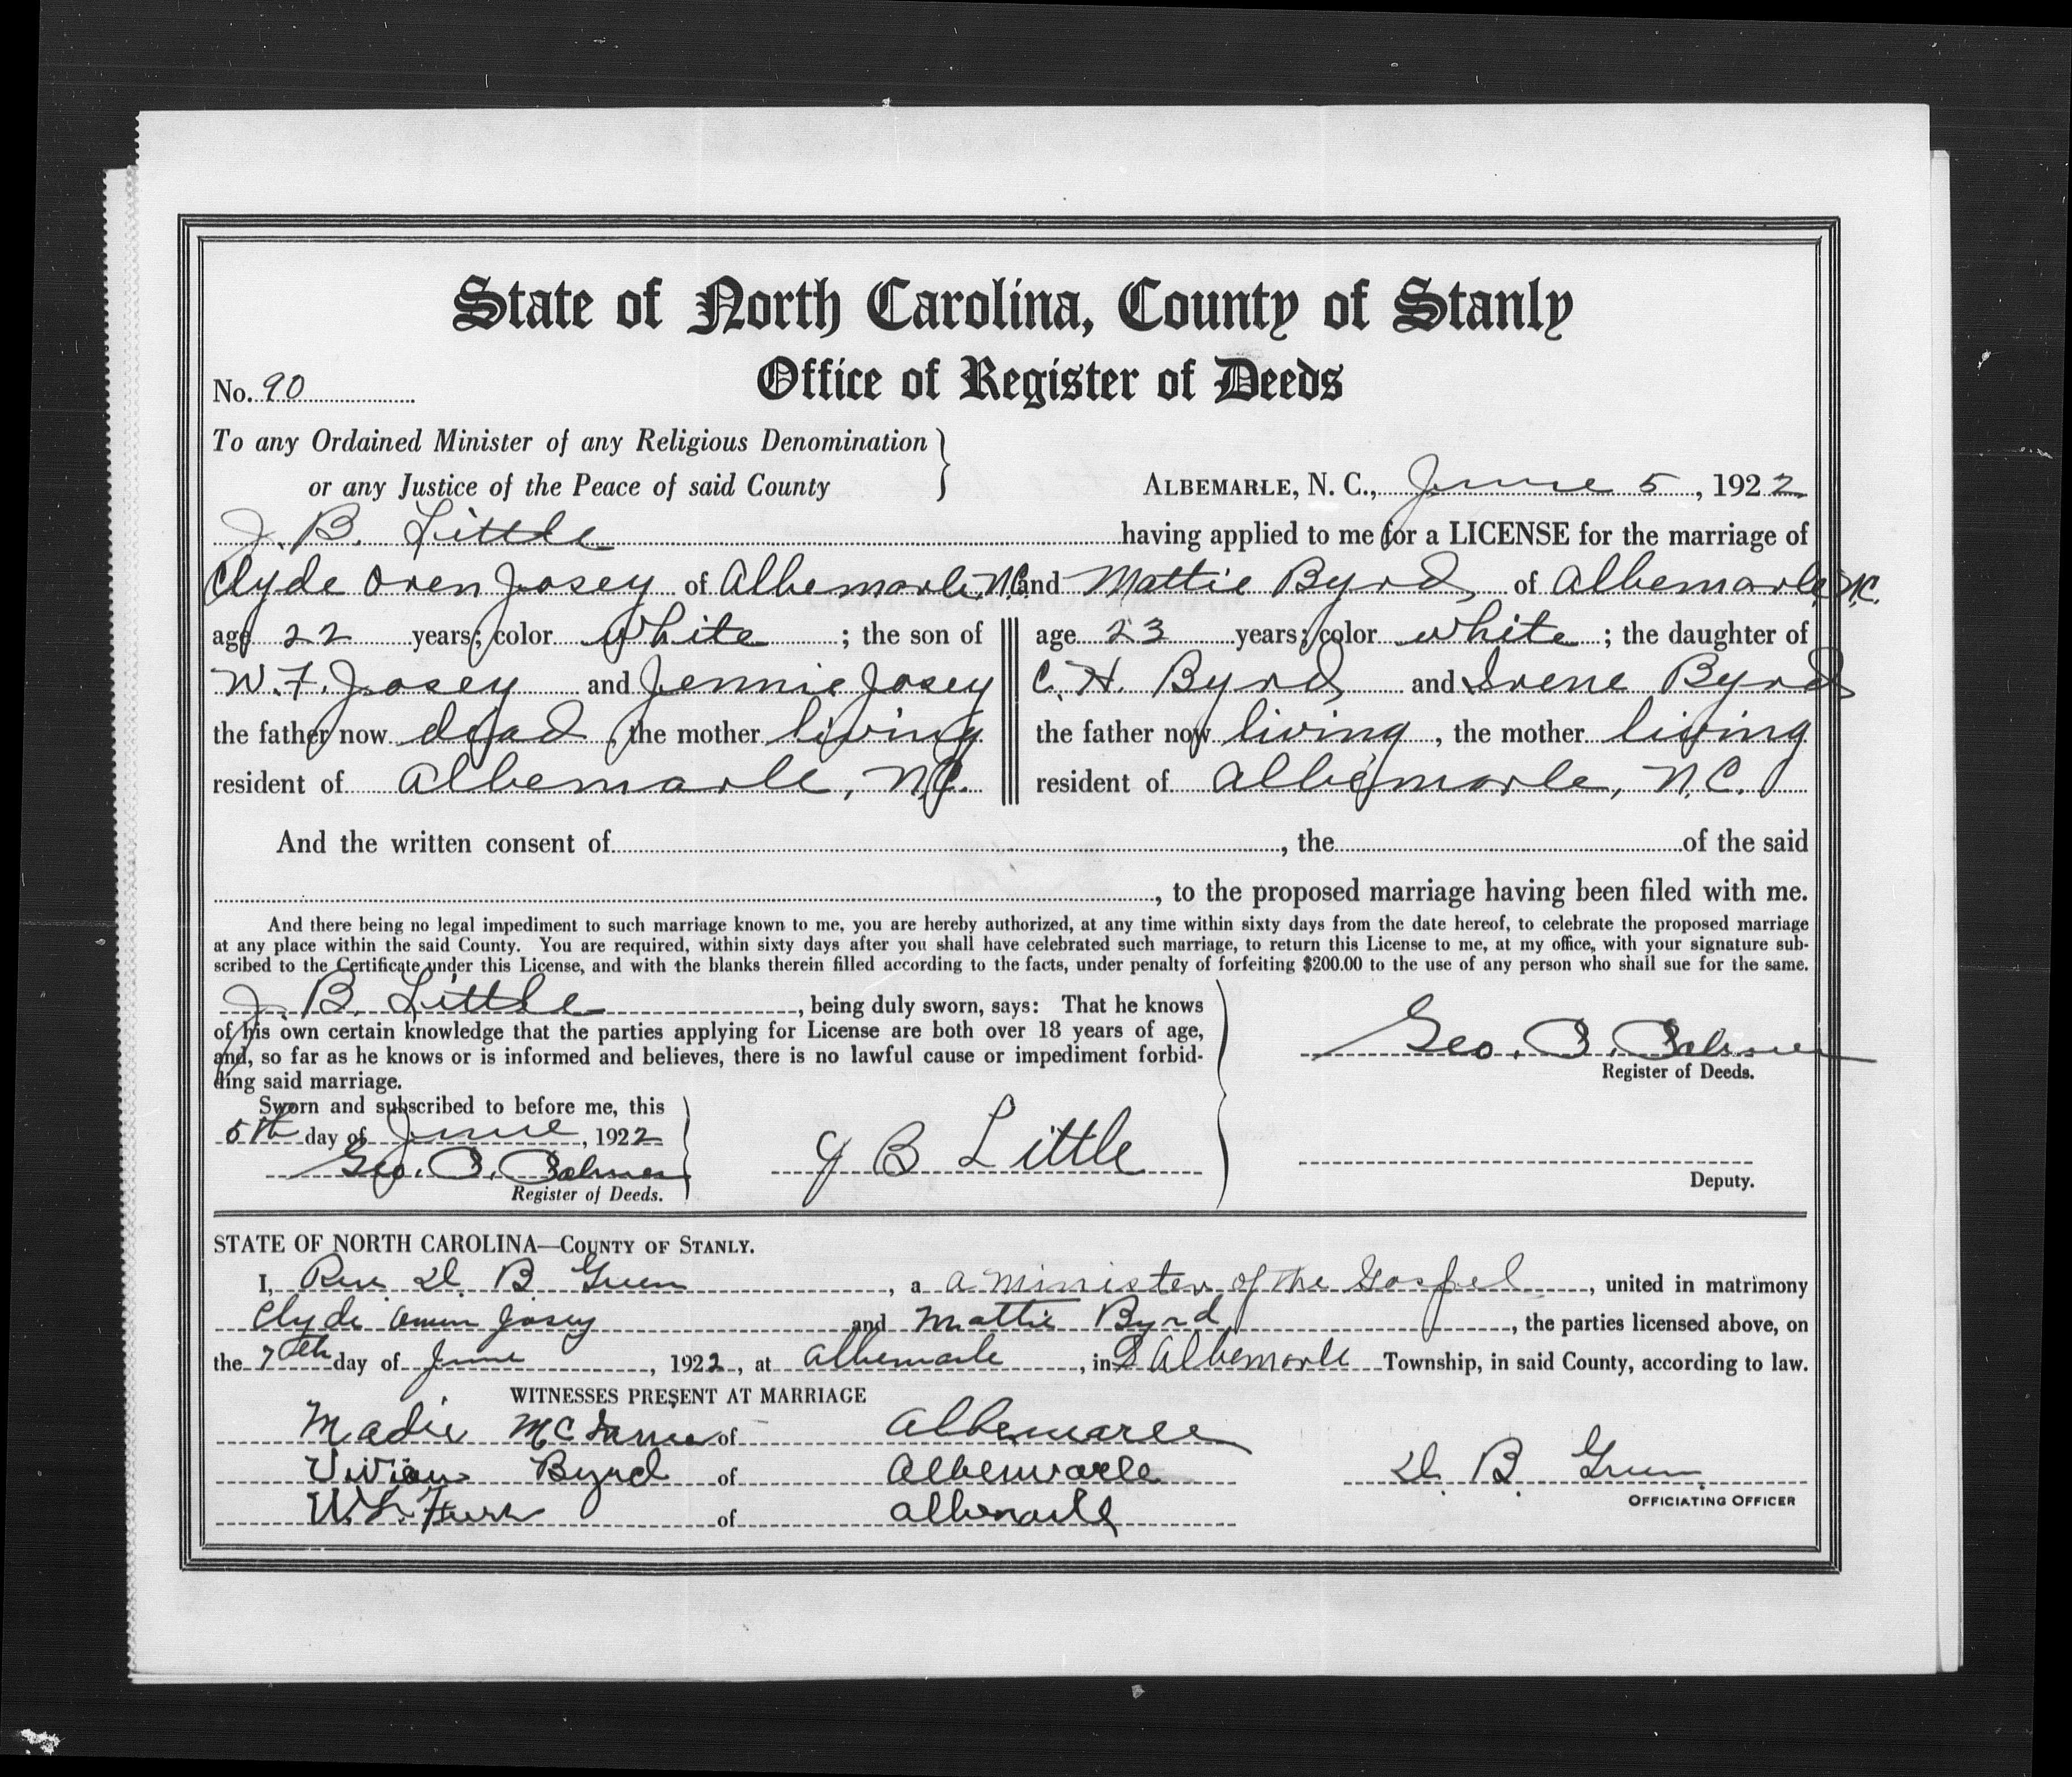 State of North Carolina, County of Stanly
Office of Register of Deeds
No. 90
To any Ordained Minister of any Religious Denomination
or any Justice of the Peace of said County
ALBEMARLE, N. C., June 5, 1922
J. B. Little having applied to me for a LICENSE for the marriage of
Clyde Oren Josey of Albemarle, N.C. and Mattie Byrd, of Albemarle, N.C.
age 22 years; color white; the son of
W. F. Josey and Jennie Josey
the father now dead, the mother living
resident of Albemarle, N.C.
age 23 years; color white; the daughter of
C. H. Byrd, and Irene Byrd
the father now living, the mother living
resident of Albemarle, N.C.
And the written consent of , the of the said
, to the proposed marriage having been filed with me.
And there being no legal impediment to such marriage known to me, you are hereby authorized, at any time within sixty days from the date hereof, to celebrate the proposed marriage
at any place within the said County. You are required, within sixty days after you shall have celebrated such marriage, to return this License to me, at my office, with your signature sub-
scribed to the Certificate under this License, and with the blanks therein filled according to the facts, under penalty of forfeiting $200.00 to the use of any person who shall sue for the same.
J. B. Little, being duly sworn, says: That he knows
of his own certain knowledge that the parties applying for License are both over 18 years of age,
and, so far as he knows or is informed and believes, there is no lawful cause or impediment forbid-
ding said marriage.
Sworn and subscribed to before me, this
5th day of June, 1922
Geo.
Register of Deeds.
J B Little
Geo.
Register of Deeds.
Deputy.
STATE OF NORTH CAROLINA—COUNTY OF STANLY.
I, Rev. D. B. Green, a a minister of the Gospel, united in matrimony
Clyde Josey and Mattie Byrd, the parties licensed above, on
the 7th day of June, 1922, at Albemarle, in S Albemarle Township, in said County, according to law.
WITNESSES PRESENT AT MARRIAGE
Madie of Albemarle
Vivian Byrd of Albemarle
W. L. of Albemarle
D. B. Green
OFFICIATING OFFICER